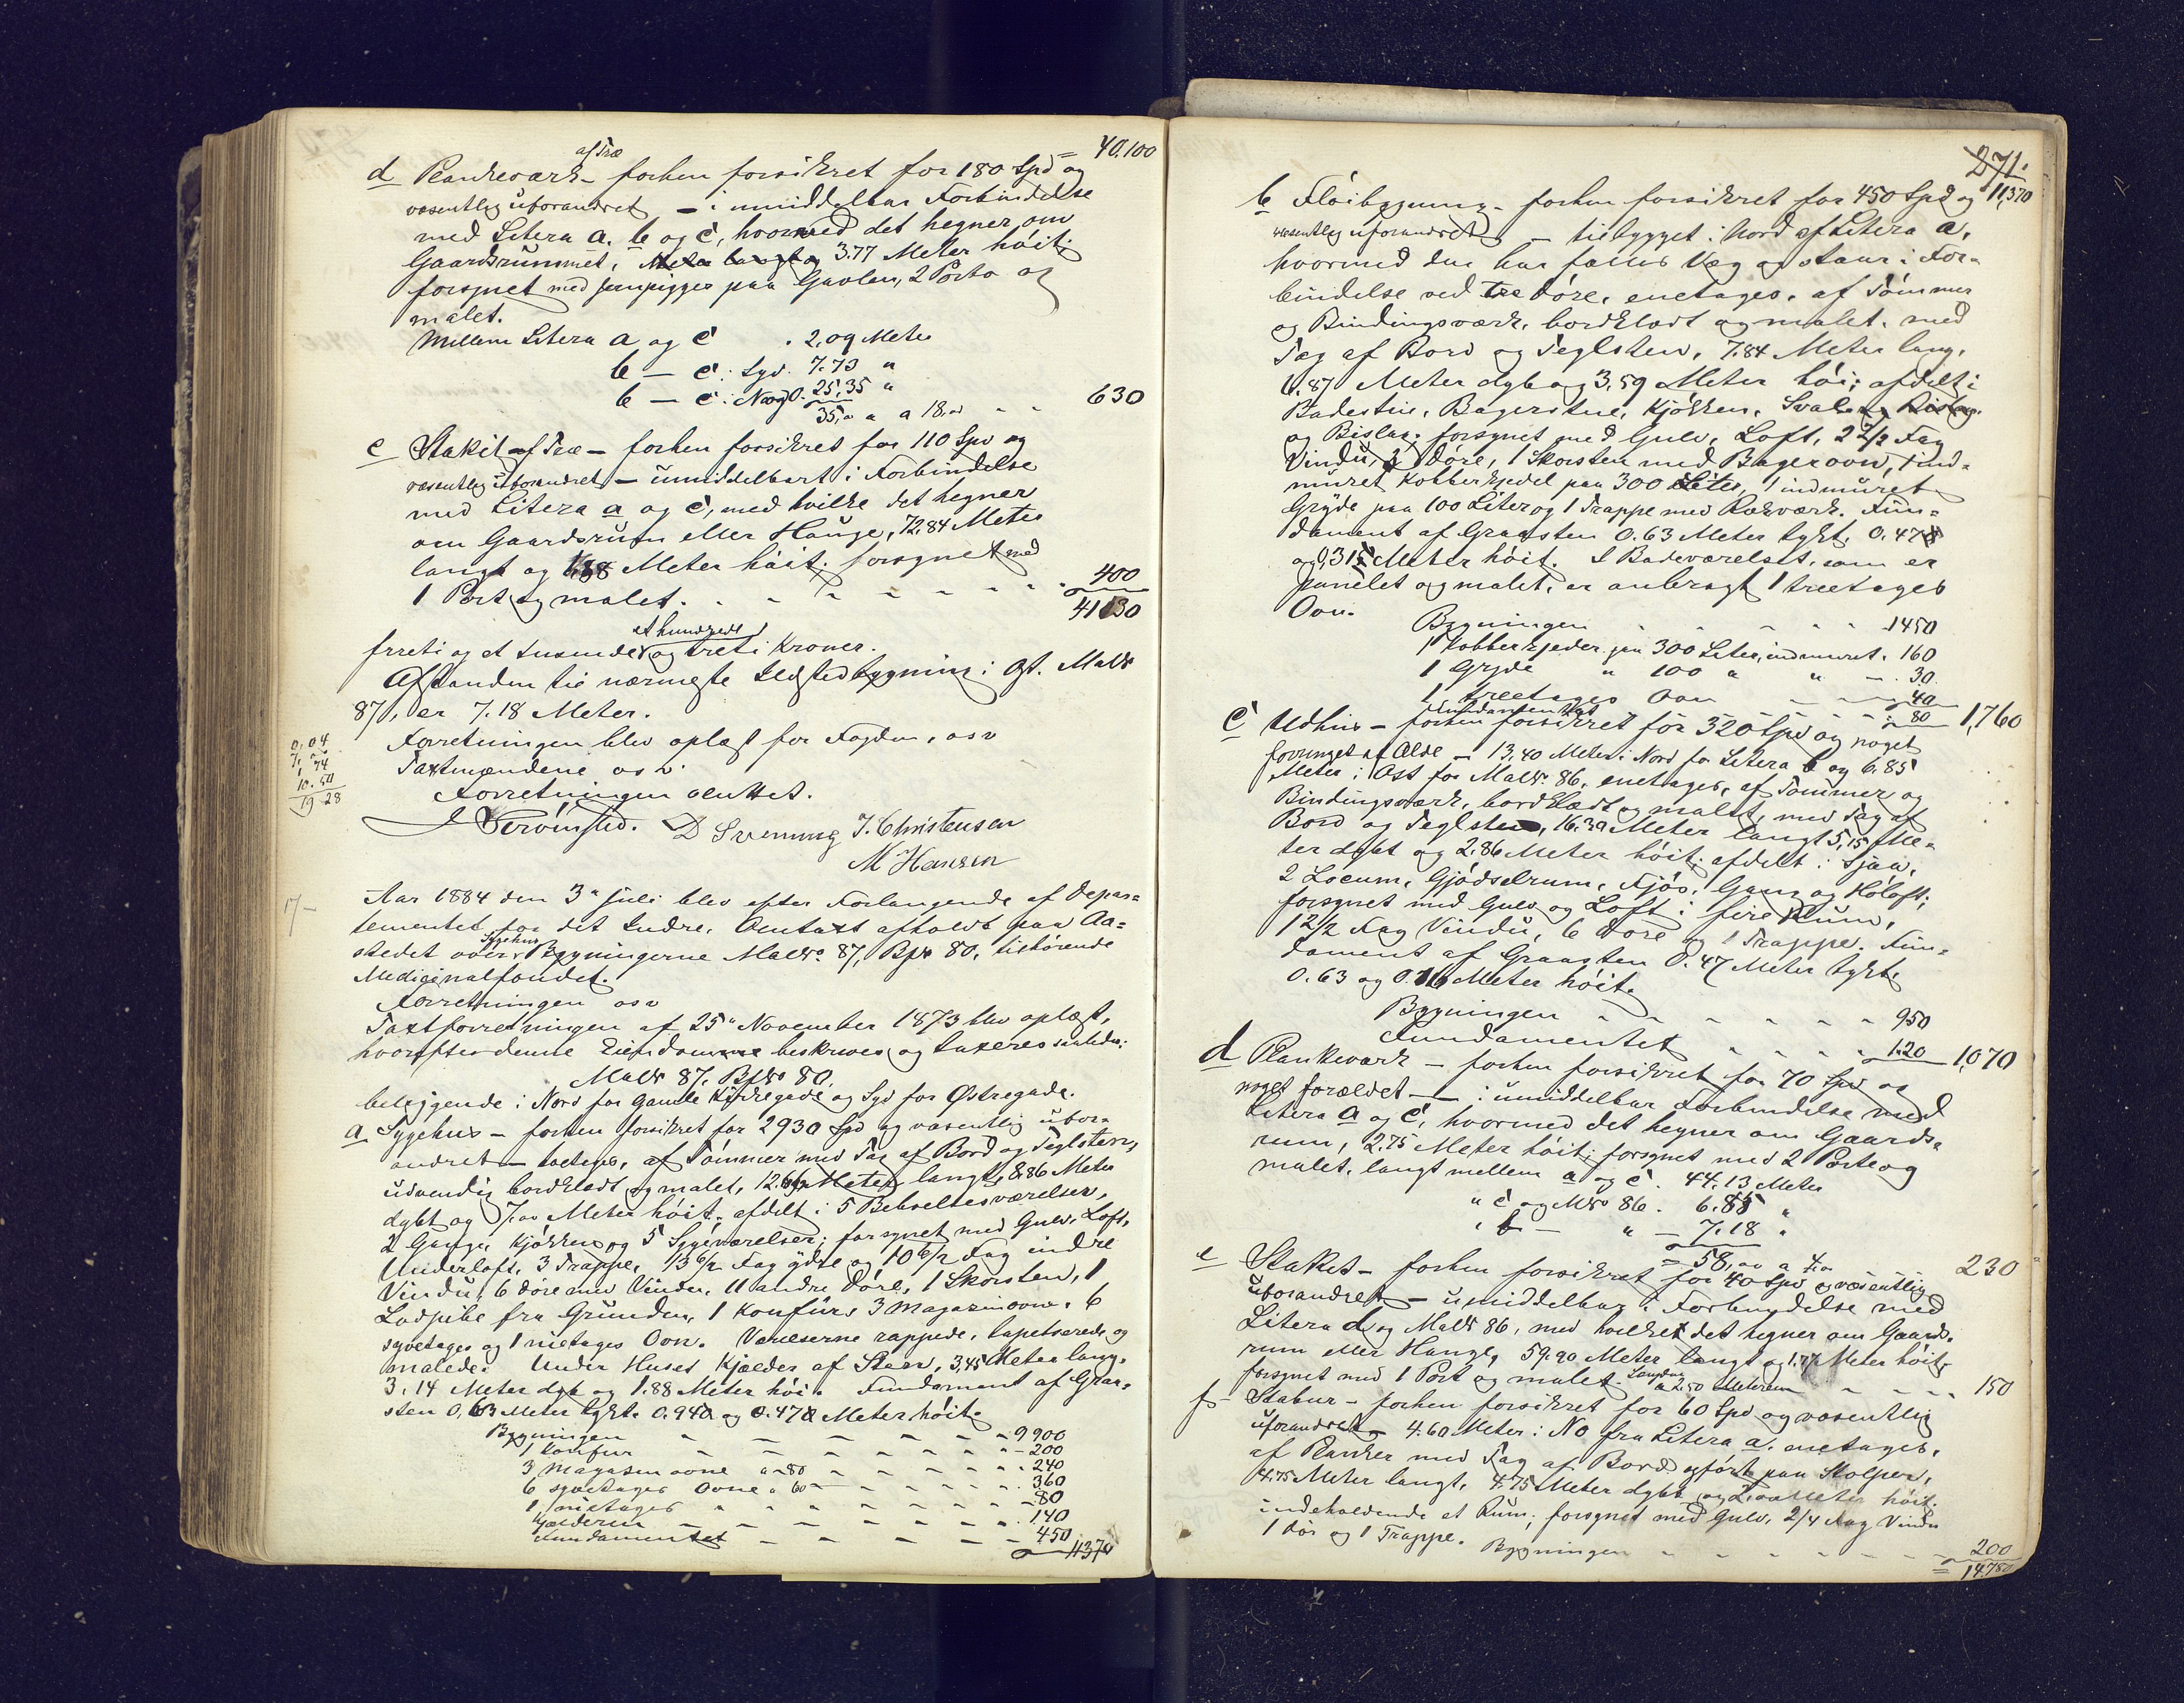 40.100
d Plankeværk af Træ – forhen forsikret for 180 Spd og
væsentlig uforandret – i umiddelbar Forbindelse
med Litera a. b og c, hvormed det hegner om
Gaardsrummet, 3.77 Meter høit.
forsynet med Jernpigger paa Gavlen, 2 Porte og
malet.
Mellem Litera a og c . 2,09 Meter
b – c i Syd. 7.73 "
b – c i N og O. 25,35 "
35,00 a 18,00 - - 630
e Stakit af Træ – forhen forsikret for 110 Spd og
væsentlig uforandret – umiddelbart i Forbindelse
med Litera a og c, med hvilke det hegner
om Gaardsrum eller Hauge, 72,84 Meter
langt og 1,88 Meter høit. forsynet med
1 Port og malet. - - - - - - 400
41130
firti og et tusende et hundrede og treti Kroner.
Afstanden til nærmeste Ildstedbygning i Øst. MatNr
87, er 7.18 Meter.
Forretningen blev oplæst for Fogden, osv
Taxtmændene osv.
Forretningen sluttet.
0,04
7,
1,74
10.50
19 28
D Svenning J. Christensen
M Hansen
17–
Aar 1884 den 3die Juli blev efter Forlangende af Depar=
tementet for det Indre, Omtaxt afholdt paa Aa=
stedet over Sygehus Bygningerne MatNr. 87, BpNr 80, tilhørende
Medicinalfondet.
Forretningen osv
Taxtforretningen af 25de November 1873 blev oplæst,
hvorefter denne Eiendom beskrives og taxeres saaledes:
MatNr 87. BpNr 80,
beliggende i Nord for Gamle Kirkegade og Syd for Østregade.
a Sygehus – forhen forsikret for 2930 Spd og væsentlig ufor=
andret – toetages, af Tømmer med Tag af Bord og Teglsten,
udvendig bordklædt og malet, 12. Meter langt, 8.86 Meter
dybt og 7.00 Meter høit. afdelt i 5 Beboelsesværelser,
2 Gange, Kjøkken og 5 Sygeværelser; forsynet med Gulv, Loft,
Underloft, 3 Trappe, 13 6/2 Fag ydre og 10 6/2 Fag indre
Vindu, 6 Døre med Vindu, 11 andre Døre, 1 Skorsten, 1
Lodpibe fra Grunden, 1 Konfur, 3 Magazinovne, 6
syvetages og 1 nietages Ovn. Værelserne rappede, tapetserede og
malede. Under Huset Kjælder af Steen, 3,45 Meter lang,
3.14 Meter dyb og 1.88 Meter høi. Fundament af Graa=
sten 0,63 Meter tykt. 0.94 og 0.47 Meter høit.
Bygningen - - - - 9900
1 Konfur - - - - 200
3 Magasinovne a 80 - - - 240
6 syvetages Ovne a 60 - - - 360
1 nietages - - - 80
Kjælderen - - - 140
Fundamentet - - - 450
11370
271.
11,370
b Fløibygning – forhen forsikret for 450 Spd og
væsentlig uforandret – tilbygget i Nord af Litera a,
hvormed den har fælles Væg og staar i For=
bindelse ved tre Døre, enetages, af Tømmer
og Bindingsværk, bordklædt og malet, med
Tag af Bord og Teglsten, 7.84 Meter lang,
6.87 Meter dyb og 3,59 Meter høi; afdelt i
Badestue, Bagerstue, Kjøkken, Sval
og Bislag; forsynet med Gulv, Loft, 2 2/2 Fag
Vindu, 3 Døre, 1 Skorsten med Bagerovn, 1 ind=
muret Kobberkjedel paa 300 Liter, 1 indmuret
Gryde paa 100 Liter og 1 Trappe med Rækværk. Fun=
dament af Graasten 0.63 Meter tykt, 0.47
og 0,31 Meter høit. I Badeværelset, som er
panelet og malet, er anbragt 1 treetages
Ovn.
Bygningen - - - - 1450
1 Kobberkjedel paa 300 Liter, indmuret. 160
1 Gryde " 100 " " – 30
1 treetages Ovn - - - 40
Fundamentet - - - 80 – 1,760
c Udhus – forhen forsikret for 320 Spd og noget
forringet af Ælde – 13,40 Meter i Nord for Litera b og 6.85
Meter i Øst for MatNr. 86, enetages, af Tømmer og
Bindingsværk, bordklædt og malet, med Tag af
Bord og Teglsten, 16,30 Meter langt 5,15 Me=
ter dybt og 2.86 Meter høit; afdelt i Sjaa,
2 Locum, Gjødselrum, Fjøs, Gang og Høloft;
forsynet med Gulv og Loft i fire Rum,
1 2/2 Fag Vindu, 6 Døre og 1 Trappe. Fun=
dament af Graasten 0.47 Meter tykt,
0.63 og 0.16 Meter høit.
Bygningen - - - - 950
Fundamentet - - - 120 – 1,070
d Plankeværk – forhen forsikret for 70 Spd og
noget forældet – i umiddelbar Forbindelse med
Litera a og c, hvormed det hegner om Gaards=
rum, 2.75 Meter høit; forsynet med 2 Porte og
malet, langt mellem a og c. 44.13 Meter
" c og MNr 86. 6.85 "
" b – " – 7.18 "
= 58,00 a 4,00 - - 230
e Staket – forhen forsikret for 40 Spd og væsentlig
uforandret – umiddelbar i Forbindelse med
Litera d og MatNr 86, med hvilket det hegner om Gaards=
rum eller Hauge, 59.90 Meter langt og 1.77 Meter høit;
forsynet med 1 Port og malet. Længden a 2.50 Meteren - - - 150
f Stabur – forhen forsikret for 60 Spd og væsentlig
uforandret – 4.60 Meter i NO fra Litera a. enetages,
af Planker med Tag af Bord, opført paa Stolper,
4.75 Meter langt, 4.75 Meter dybt og Meter høit.
indeholdende et Rum; forsynet med Gulv, 2/4 Fag Vindu
1 Dør og 1 Trappe. Bygningen - - - - 200
= 14.780